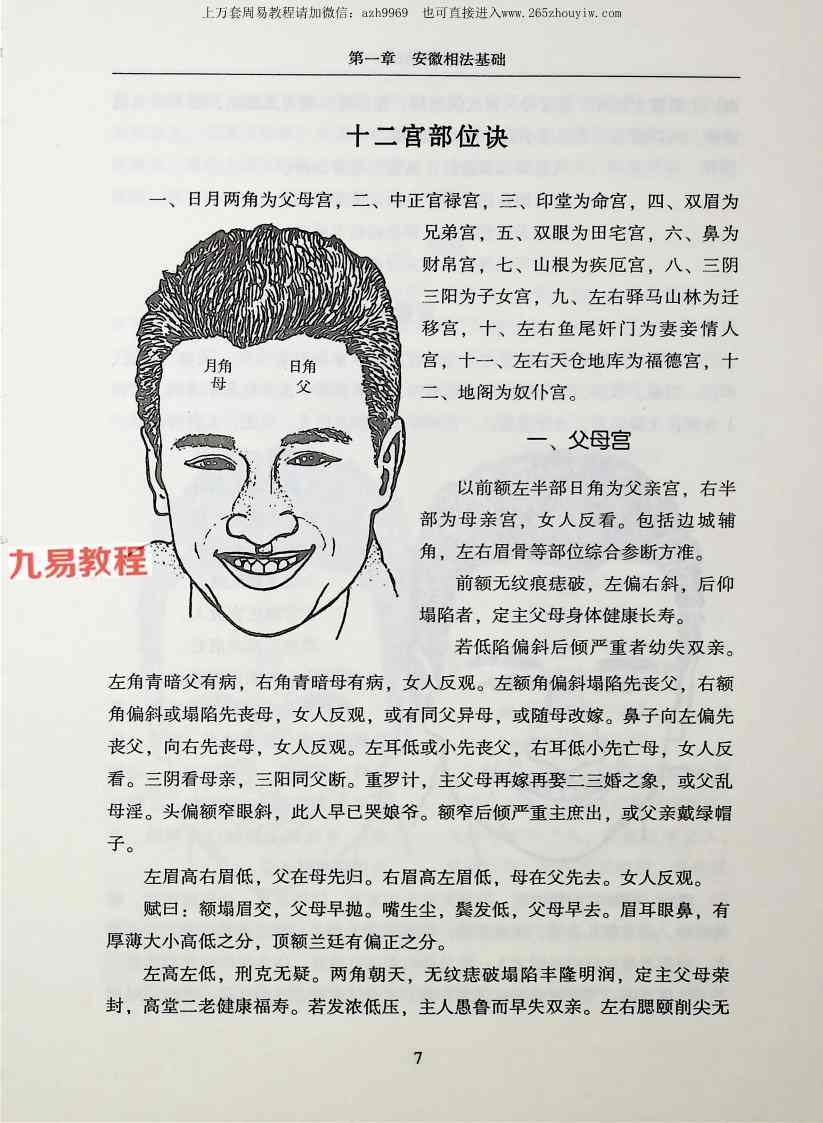 上万套周易教程请加微信：azh9969　也可直接进入www.265zhouyiw.com
第一章　安徽相法基础
十二宫部位诀
一、日月两角为父母宫，二、中正官禄宫，三、印堂为命宫，四、双眉为
兄弟宫，五、双眼为田宅宫，六、鼻为
财帛宫，七、山根为疾厄宫，八、三阴
三阳为子女宫，九、左右驿马山林为迁
移宫，十、左右鱼尾奸门为妻妾情人
宫，十一、左右天仓地库为福德宫，十
二、地阁为奴仆宫。
月角
母
日角
父
一、父母宫
以前额左半部日角为父亲宫，右半
部为母亲宫，女人反看。包括边城辅
角，左右眉骨等部位综合参断方准。
九易教程
前额无纹痕痣破，左偏右斜，后仰
塌陷者，定主父母身体健康长寿。
若低陷偏斜后倾严重者幼失双亲。
左角青暗父有病，右角青暗母有病，女人反观。左额角偏斜塌陷先丧父，右额
角偏斜或塌陷先丧母，女人反观，或有同父异母，或随母改嫁。鼻子向左偏先
丧父，向右先丧母，女人反观。左耳低或小先丧父，右耳低小先亡母，女人反
看。三阴看母亲，三阳同父断。重罗计，主父母再嫁再娶二三婚之象，或父乱
母淫。头偏额窄眼斜，此人早已哭娘爷。额窄后倾严重主庶出，或父亲戴绿帽
子。
左眉高右眉低，父在母先归。右眉高左眉低，母在父先去。女人反观。
赋曰：额塌眉交，父母早抛。嘴生尘，鬓发低，父母早去。眉耳眼鼻，有
厚薄大小高低之分，顶额兰廷有偏正之分。
左高左低，刑克无疑。两角朝天，无纹痣破塌陷丰隆明润，定主父母荣
封，高堂二老健康福寿。若发浓低压，主人愚鲁而早失双亲。左右腮颐削尖无
7